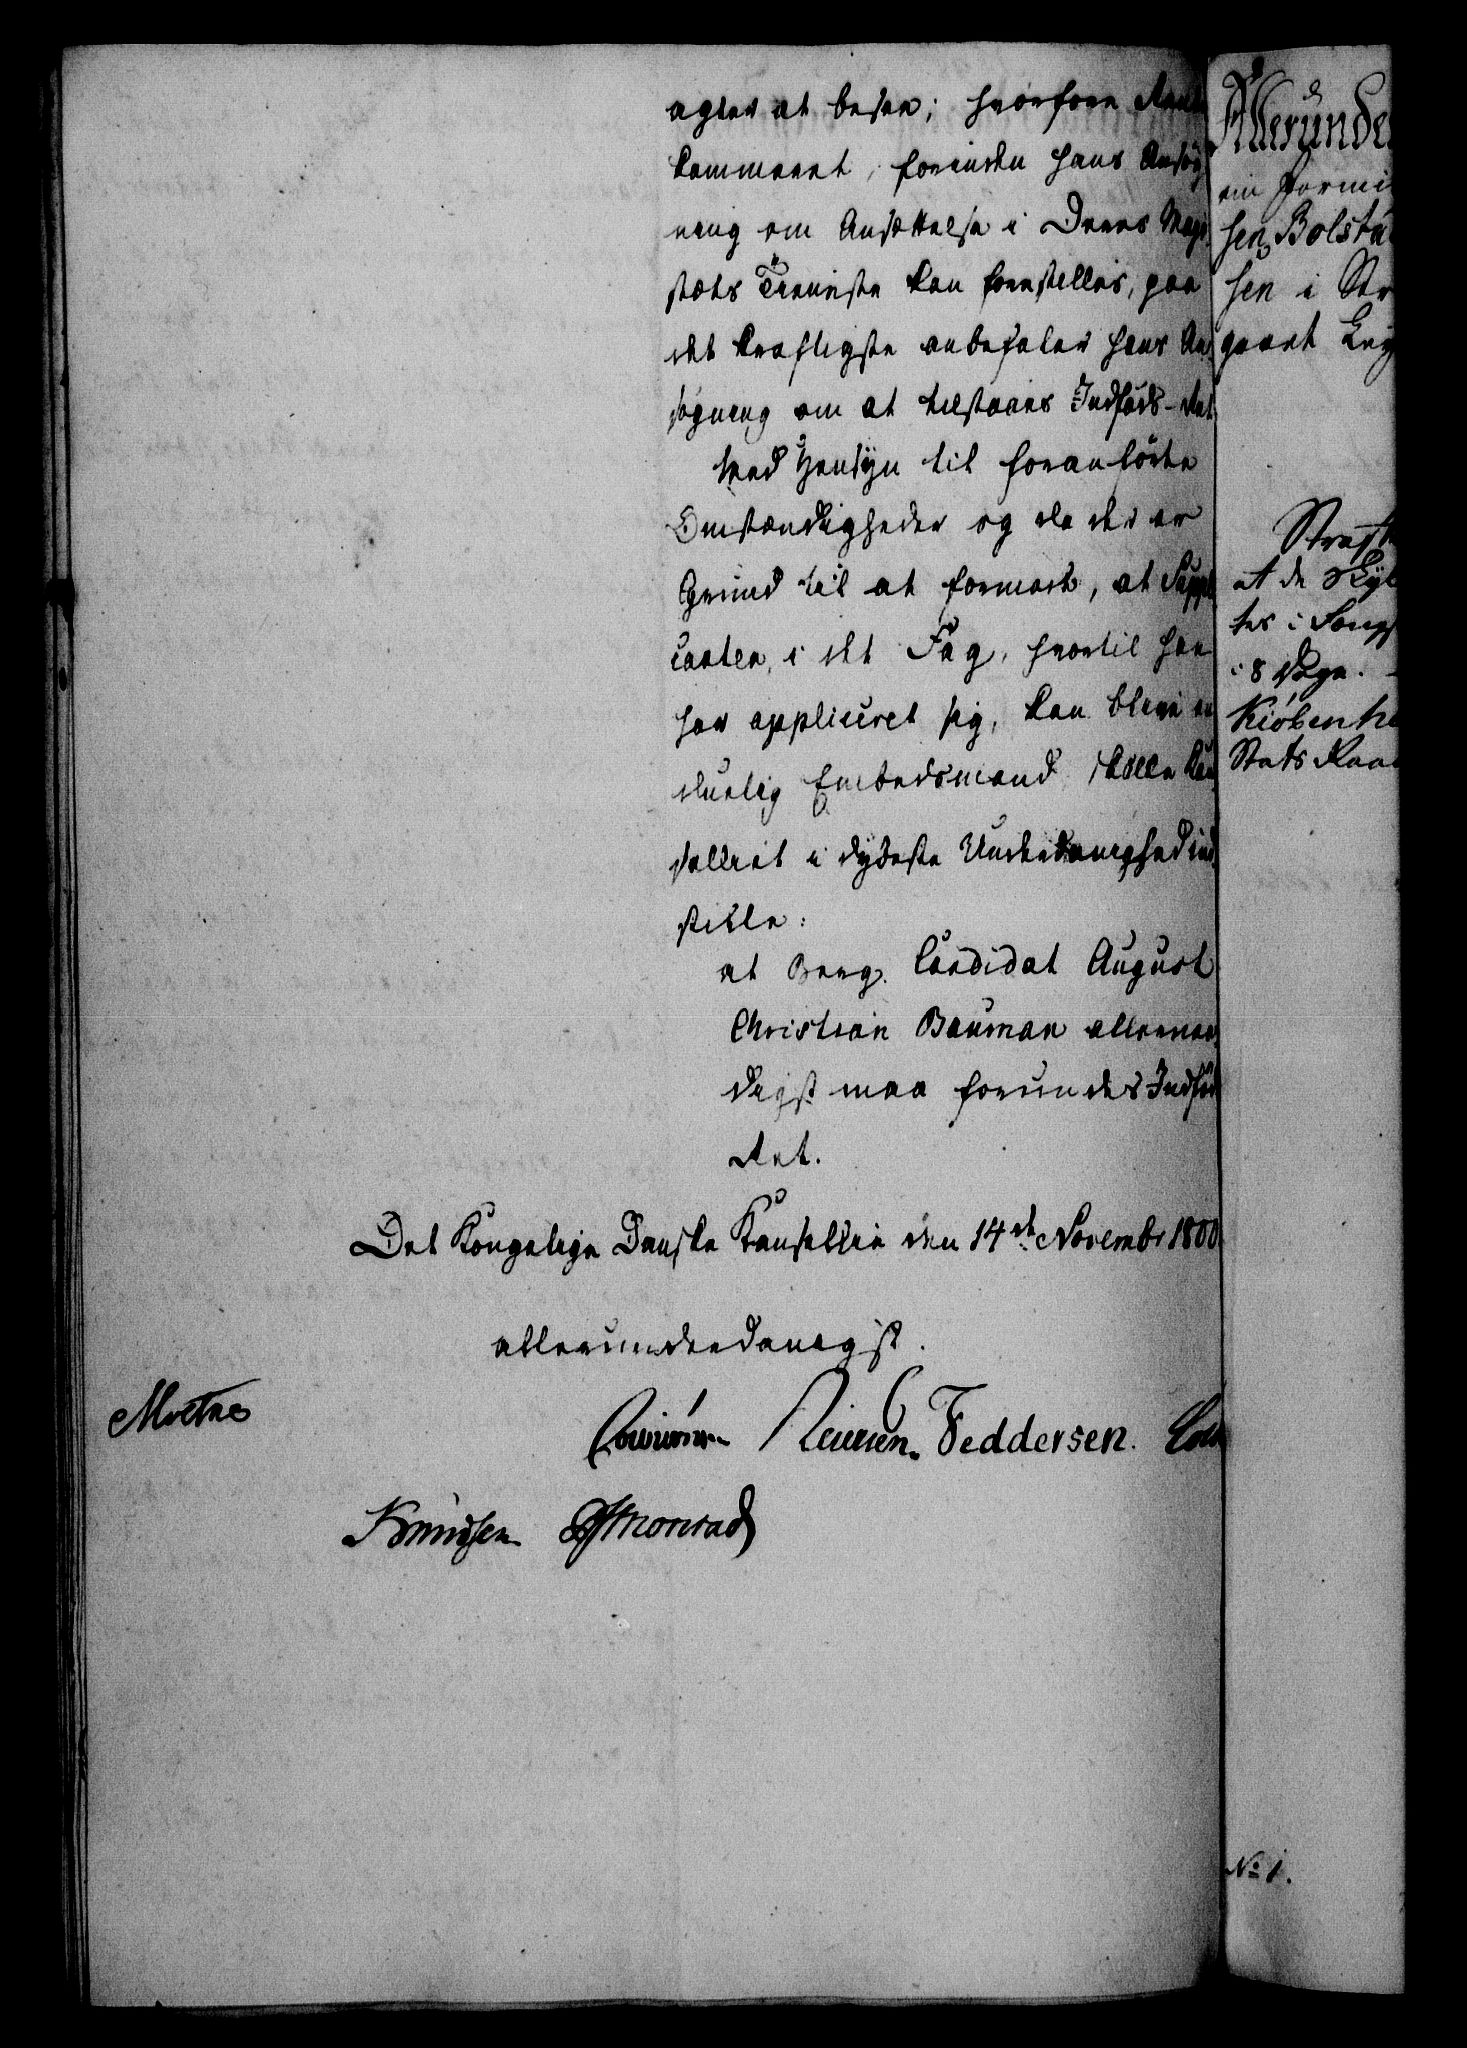 agter at besee; hvorfore Rente
kammeret, forinden hans Ansøg
ning om Ansættelse i Deres Maje
stæts Tieneste kan forestilles, paa
det kraftigste anbefaler hans An
søgning om at tilstaaes Indføds-Ret
Med Hensyn til foranførte
Omstændigheder og da der er
Grund til at formode, at Suppli
canten, i det Fag, hvortil han
har appliceret sig, kan blive en
duelig Embedsmand skulle Can
celliet i dybeste Underdanighed ind
stille:
at Berg. Candidat August
Christian Bauman allernaa
digst maa forundes Indføds
Ret.
Det Kongelige Danske Kancellie den 14de Novembr 1800
allerunderdanigst.
Moltke
Feddersen.
Knudsen Monrad
Allerunde
sen Bolstu
sen i St
at de
i 8 Dage.
Kiøbenha
Stats Raad
No 1.